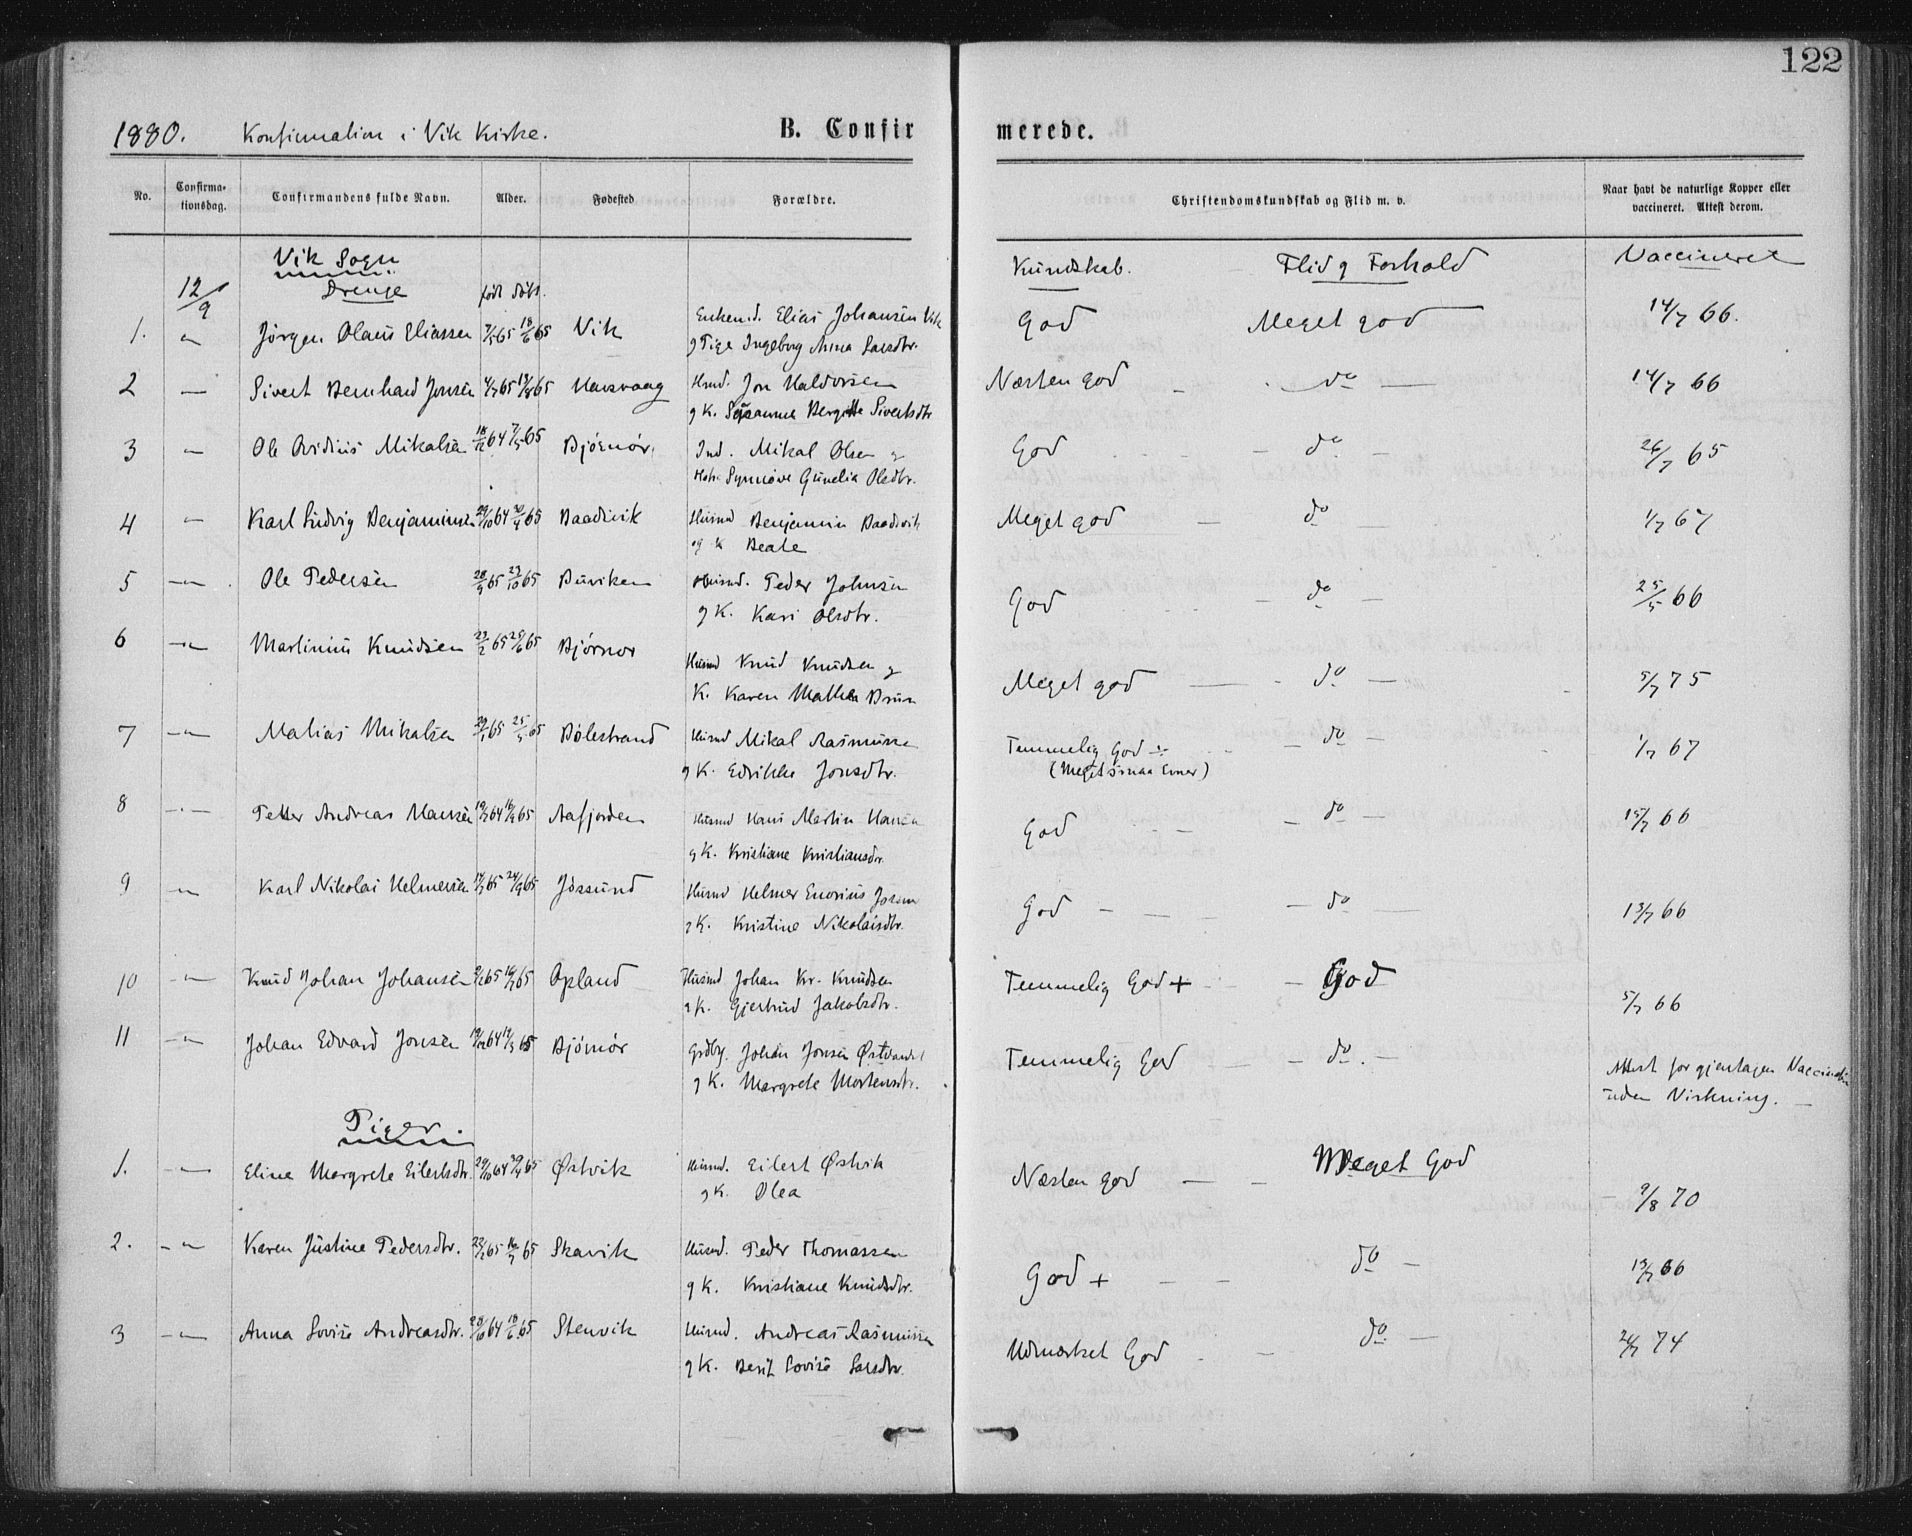 122
1880. Konfirmation i Vik Kirke. B. Confirmerede.
No. Confirmationsdag. Confirmandens fulde Navn. Alder. Fødested Forældre. Christendomskundskab og Flid m. v. Naar havt de naturlige Kopper eller vaccineret. Attest derom.
Vik Sogn Kundskab. Flid og Forhold Vaccineret
12/9 Drenge født døbt.
1. Jørgen Olaus Eliassen 65 18/6 65 Vik Enkem. Elias Johansen Vik God Meget god 14/7 66.
g Pige Ingeborg Anna Larsdtr.
2 Sivert Bernhard Jonsen 4/7 65 65 Husmd. Jon Haldorsen Næsten god do 14/7 66
g K. Susanne Bergitte Sivertsdtr
3 Ole Mikalsen 18/12 64 7/5 65 Bjørnør. Ind. Mikal Olsen g God do 26/7 65
Synnøve Gunelia Olsdtr.
4 Karl Ludvig Benjaminsen 29/10 64 65 Baadsvik Husmd Benjamin Baadsvik Meget god do 1/7 67
og K Beate
5 Ole Pedersen 28/9 65 29/10 65 Buviken Husmd. Peder Johnsen God do 25/5 66
g K. Kari Olsdtr.
6 Martinus Knudsen 23/2 65 25/6 65 Bjørnør Husmd Knud Knudsen g Meget god do 5/7 75
K. Karen Mathea Brun
7 Matias Mikalsen 65 25/5 65 Bølestrand Husmd Mikal Rasmussen Temmelig God ÷ do 1/7 67
g K. Edrikke Jonsdtr. (Meget smaa Evner)
8 Petter Andreas Hansen 64 65 Aafjorden Husmd Hans Martin Hansen God do 15/7 66
g K. Kristiane Kristiansdr.
9 Karl Nikolai Helmersen 65 24/9 65 Jøssund Husmd Helmer God do 13/7 66
g K. Kristine Nikolaisdtr.
10 Knud Johan Johansen 65 65 Opland Husmd Johan Kr. Knudsen Temmelig God + God 5/7 66
g K. Gjertrud Jakobsdtr.
11 Johan Edvard Jonsen 64 65 Bjørnør Grdbr. Johan Jonsen Temmelig God do. Attest for gjentagen Vaccination
g K. Margrete Mortensdtr. uden Virkning.
Piger.
1. Eline Margrete Eilertsdtr. 29/10 64 65 Østvik Husmd. Eilert Østvik Næsten god Meget God 9/8 70
g K. Olea
2. Karen Justine Pedersdtr. 65 65 Skavik Husmd. Peder Thomassen God + do 13/7 66
g K. Kristiane Knudsdtr.
3 Anna Lovise Andreasdtr. 64 18/6 65 Stenvik Husmd. Andreas Rasmussen Udmærket God do 74
g K. Berit Lovise Larsdtr.